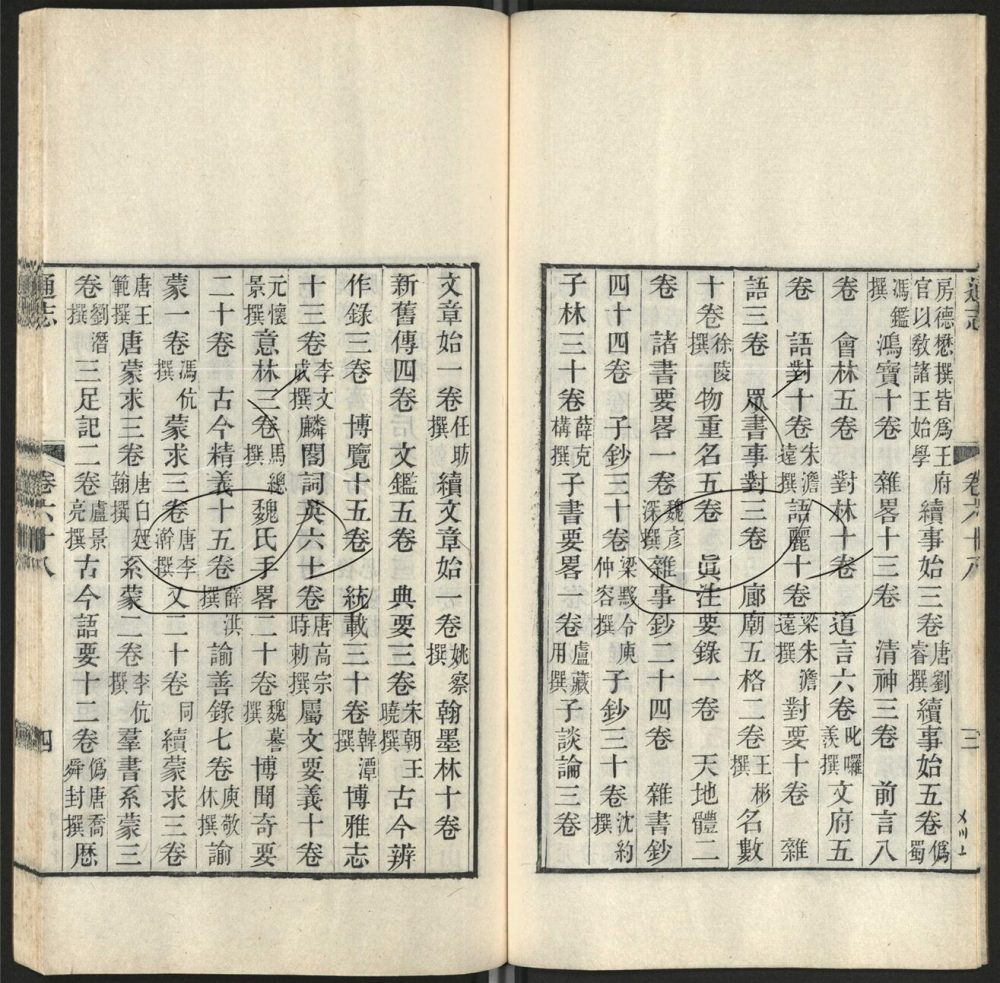 通志
卷六十八
三
房德懋撰皆爲王府官以敎諸王始學 續事始三卷唐劉睿撰續事始五卷僞蜀
馮鑑撰 鴻寶十卷 雜畧十三卷 清神三卷 前言八
卷 會林五卷 對林十卷 道言六卷叱囉羨撰文府五
卷 語對十卷朱澹遠撰語麗十卷梁朱澹遠撰對要十卷 雜
語三卷 眾書事對三卷 廊廟五格二卷王彬撰名數
十卷徐陵撰物重名五卷 眞注要錄一卷 天地體二
卷 諸書要畧一卷魏彦深撰雜事鈔二十四卷 雜書鈔
四十四卷 子鈔三十卷梁黟令庾仲容撰子鈔三十卷沈約撰
子林三十卷薛克構撰子書要畧一卷盧藏用撰子談論三卷
文章始一卷任昉撰續文章始一卷姚察撰翰墨林十卷
新舊傳四卷 文鑑五卷 典要三卷宋朝王曉撰古今辨
作錄三卷 博覽十五卷 統載三十卷韓潭撰博雅志
十三卷李文成撰麟閣詞英六十卷唐高宗時勅撰屬文要義十卷
元懷景撰意林三卷馬總撰魏氏手畧二十卷魏謩撰博聞奇要
二十卷 古今精義十五卷薛洪撰諭善錄七卷庾敬休撰諭
蒙一卷馮伉撰蒙求三卷唐李瀚撰又二十卷同 續蒙求三卷
唐王範撰唐蒙求三卷唐白廷翰撰系蒙二卷李伉撰羣書系蒙三
卷劉潛撰三足記二卷盧景亮撰古今語要十二卷僞唐喬舜封撰厯
通志
卷六十八
四